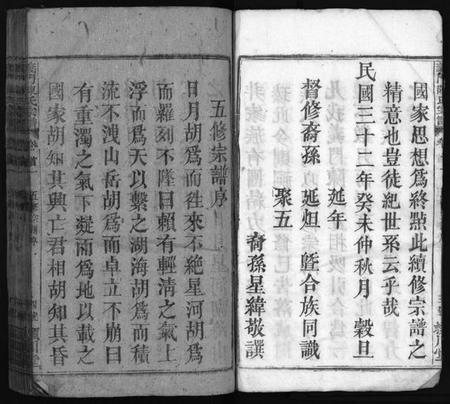 國家思想爲終點此續修宗譜之
精意也豈徒紀世系云乎哉
民國三十二年癸未仲秋月 穀旦
延年
督修裔孫 延烜 曁合族同識
聚五
裔孫星緯敬譔
五修宗譜序
日月胡爲而往來不絕星河胡爲
而羅刻不墜曰賴有輕清之氣上
浮而爲天以繫之湖海胡爲而積
流不洩山岳胡爲而卓立不崩曰
有重濁之氣下凝而爲地以載之
國家胡知其興亡君相胡知其昏